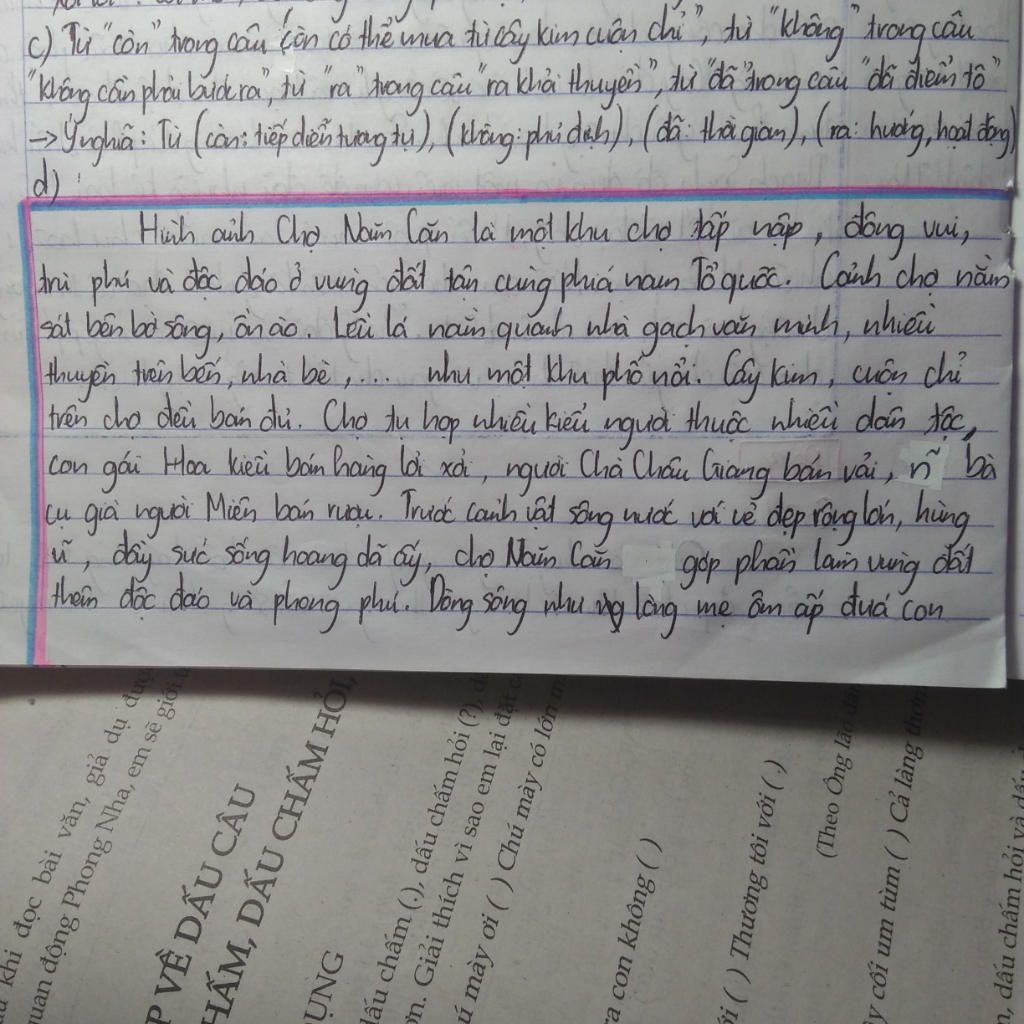 c) Từ "còn" trong câu "còn có thể mua từ cây kim cuộn chỉ", từ "không" trong câu
"không cần phải bước ra", từ "ra" trong câu "ra khỏi thuyền", từ "đã" trong câu "đã điểm tô"
→ Ý nghĩa: Từ (còn: tiếp diễn tương tự), (không: phủ định), (đã: thời gian), (ra: hướng, hoạt động)
d)
Hình ảnh Chợ Năm Căn là một khu chợ tấp nập, đông vui,
trù phú và độc đáo ở vùng đất tận cùng phía nam Tổ quốc. Cảnh chợ nằm
sát bên bờ sông, ồn ào. Lều lá nằm quanh nhà gạch văn minh, nhiều
thuyền trên bến, nhà bè,... như một khu phố nổi. Cây kim, cuộn chỉ
trên chợ đều bán đủ. Chợ tụ họp nhiều kiểu người thuộc nhiều dân tộc,
con gái Hoa kiều bán hàng lời xởi, người Chà Châu Giang bán vải, bà
cụ già người Miên bán rượu. Trước cảnh vật sông nước với vẻ đẹp rộng lớn, hùng
vĩ, đầy sức sống hoang dã ấy, chợ Năm Căn góp phần làm vùng đất
thêm độc đáo và phong phú. Dòng sông như lòng mẹ ôm ấp đứa con
khi đọc bài văn, giả dụ được
quan động Phong Nha, em sẽ giới
P VỀ DẤU CÂU
HẤM, DẤU CHẤM HỎI,
DỤNG
dấu chấm (.), dấu chấm hỏi (?),
ơn. Giải thích vì sao em lại đặt
ú mày ơi ( ) Chú mày có lớn
ra con không ( )
ới ( ) Thương tôi với ( .)
(Theo Ông lão
ây cối um tùm ( ) Cả làng thơm
n, dấu chấm hỏi và dấu